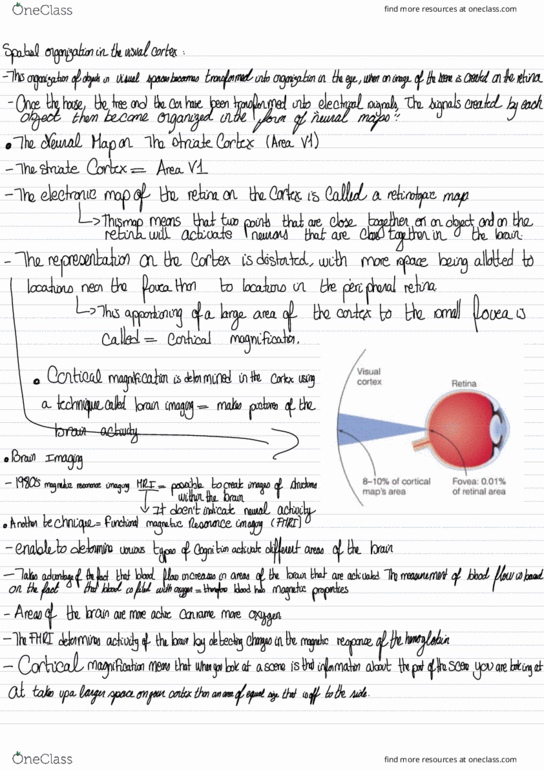 OneClass
find more resources at oneclass.com
Spatial organization in the visual cortex:
-This organization of objects in visual space becomes transformed into organization in the eye, when an image of the scene is created on the retina
- Once the house, the tree and the car have been transformed into electrical signals, The signals created by each
object then become organized in the form of neural maps
• The Neural Map on The Striate Cortex (Area V1)
- The striate Cortex = Area V1
- The electronic map of the retina on the Cortex is Called a retinotopic map
This map means that two points that are close together on an object and on the
retina will activate neurons that are close together in the brain.
- The representation on the Cortex is distorted, with more space being allotted to
locations near the fovea than to locations in the peripheral retina
This apportioning of a large area of the cortex to the small fovea is
Called = Cortical magnification.
• Cortical magnification is determined in the cortex using
a technique called brain imaging = makes pictures of the
brain activity
Visual
cortex
Retina
8–10% of cortical
map's area
Fovea: 0.01%
of retinal area
• Brain Imaging
- 1980s magnetic resonance imaging MRI = possible to create images of structures
within the brain
It doesn't indicate neural activity
• Another technique = Functional magnetic Resonance imaging (FMRI)
- enable to determine various types of Cognition activate different areas of the brain
- Takes advantage of the fact that blood flow increases in areas of the brain that are activated The measurement of blood flow is based
on the fact that blood is filled with oxygen = therefore blood has magnetic properties
- Areas of the brain are more active consume more oxygen
- The FMRI determines activity of the brain by detecting changes in the magnetic response of the hemoglobin
- Cortical magnification means that when you look at a scene is that information about the part of the scene you are looking at
at takes up a larger space on your cortex than an area of equal size that is off to the side.
OneClass
find more resources at oneclass.com